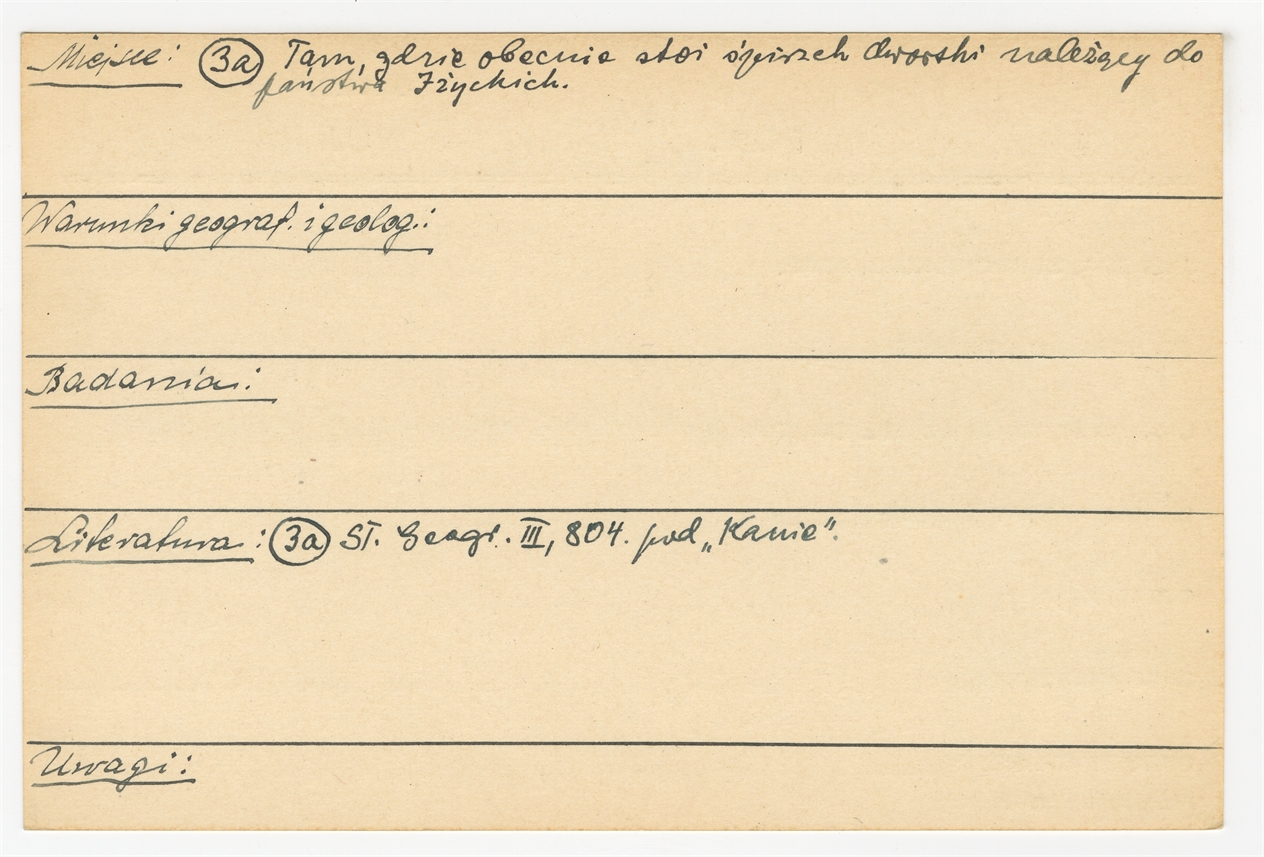 Miejsce: (3a) Tam, gdzie obecnie stoi śpirzch dworski należący do
państwa Iżyckich.
Warunki geograf. i geolog.:
Badania:
Literatura: (3a) Sł. Geogr. III, 804. pod „Kanie".
Uwagi: